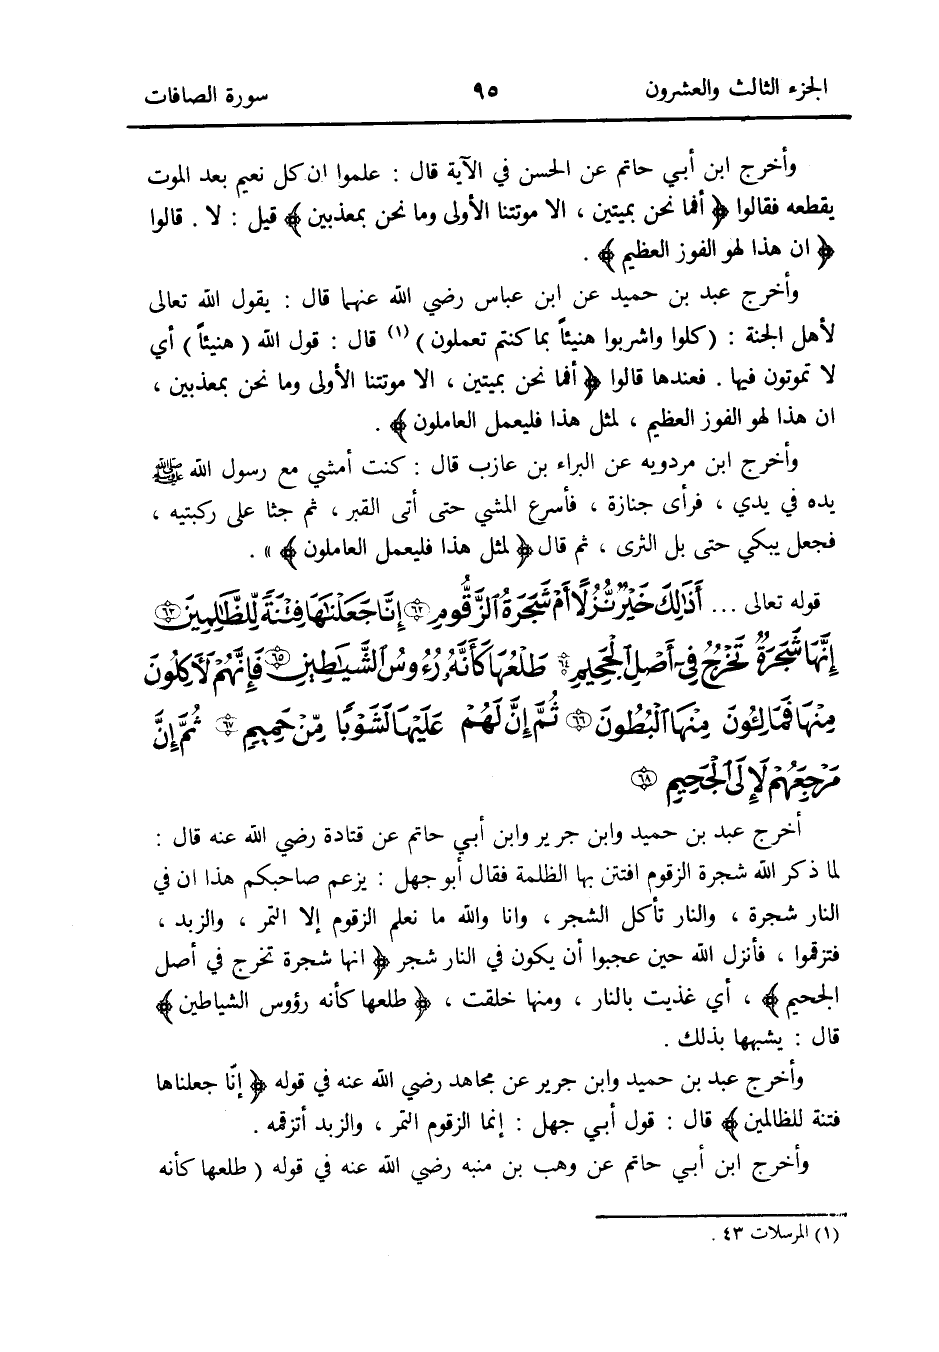 الجزء الثالث والعشرون ٩٥ سورة الصافات
وأخرج ابن أبي حاتم عن الحسن في الآية قال : علموا ان كل نعيم بعد الموت
يقطعه فقالوا ﴿ أفما نحن بميتين ، الا موتتنا الأولى وما نحن بمعذبين ﴾ قيل : لا . قالوا
﴿ ان هذا لهو الفوز العظيم ﴾ .
وأخرج عبد بن حميد عن ابن عباس رضي الله عنهما قال : يقول الله تعالى
لأهل الجنة : (كلوا واشربوا هنيئاً بما كنتم تعملون) (١) قال : قول الله ( هنيئاً ) أي
لا تموتون فيها . فعندها قالوا ﴿ أفما نحن بميتين ، الا موتتنا الأولى وما نحن بمعذبين ،
ان هذا لهو الفوز العظيم ، لمثل هذا فليعمل العاملون ﴾ .
وأخرج ابن مردويه عن البراء بن عازب قال : كنت أمشي مع رسول الله ﷺ
يده في يدي ، فرأى جنازة ، فأسرع المشي حتى أتى القبر ، ثم جثا على ركبتيه ،
فجعل يبكي حتى بل الثرى ، ثم قال ﴿ لمثل هذا فليعمل العاملون ﴾ » .
قوله تعالى ... أَذَٰلِكَ خَيْرٌ نُّزُلًا أَمْ شَجَرَةُ الزَّقُّومِ ٦٢ إِنَّا جَعَلْنَاهَا فِتْنَةً لِّلظَّالِمِينَ ٦٣
إِنَّهَا شَجَرَةٌ تَخْرُجُ فِي أَصْلِ الْجَحِيمِ ٦٤ طَلْعُهَا كَأَنَّهُ رُءُوسُ الشَّيَاطِينِ ٦٥ فَإِنَّهُمْ لَآكِلُونَ
مِنْهَا فَمَالِئُونَ مِنْهَا الْبُطُونَ ٦٦ ثُمَّ إِنَّ لَهُمْ عَلَيْهَا لَشَوْبًا مِّنْ حَمِيمٍ ٦٧ ثُمَّ إِنَّ
مَرْجِعَهُمْ لَإِلَى الْجَحِيمِ ٦٨
أخرج عبد بن حميد وابن جرير وابن أبي حاتم عن قتادة رضي الله عنه قال :
لما ذكر الله شجرة الزقوم افتتن بها الظلمة فقال أبو جهل : يزعم صاحبكم هذا ان في
النار شجرة ، والنار تأكل الشجر ، وانا والله ما نعلم الزقوم إلا التمر ، والزبد ،
فتزقموا ، فأنزل الله حين عجبوا أن يكون في النار شجر ﴿ انها شجرة تخرج في أصل
الجحيم ﴾ ، أي غذيت بالنار ، ومنها خلقت ، ﴿ طلعها كأنه رؤوس الشياطين ﴾
قال : يشبهها بذلك .
وأخرج عبد بن حميد وابن جرير عن مجاهد رضي الله عنه في قوله ﴿ إنّا جعلناها
فتنة للظالمين ﴾ قال : قول أبي جهل : إنما الزقوم التمر ، والزبد أتزقمه .
وأخرج ابن أبي حاتم عن وهب بن منبه رضي الله عنه في قوله ( طلعها كأنه
(١) المرسلات ٤٣ .